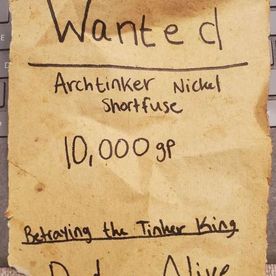 Wanted
Archtinker Nickel
Shortfuse
10,000 gp
Betraying the Tinker King
Alive